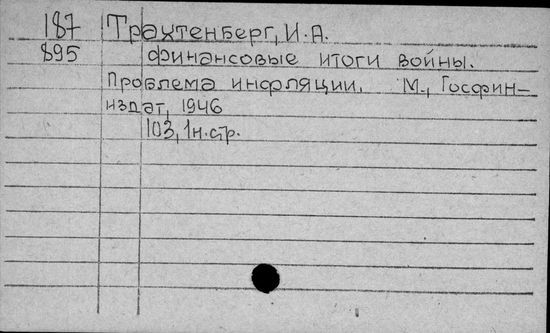 187 Трахтенберг, И.А.
895 Финансовые итоги войны.
Проблема инфляции. М., Госфин-
издат, 1946
103, 1н.стр.